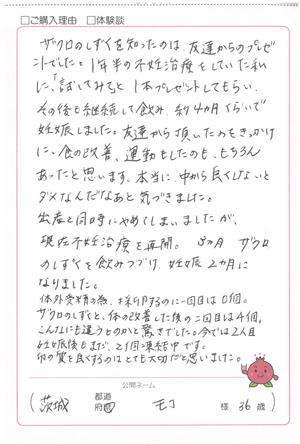 □ご購入理由 □体験談
ザクロのしずくを知ったのは、友達からのプレゼ
ントでした。1年半の不妊治療をしていた私
に、「試してみて」と1本プレゼントしてもらい、
その後も継続して飲み、約4ヵ月くらいで
妊娠しました。友達から頂いたのをきっかけ
に、食の改善、運動もしたのも、もちろん
あったと思います。本当に、中から良くしないと
ダメなんだなあと気づきました。
出産と同時にやめてしまいましたが、
現在不妊治療を再開。3ヵ月 ザクロ
のしずくを飲みつづけ、妊娠2ヵ月に
なりました。
体外受精の為、採卵するのに一回目は0個。
ザクロのしずくと、体の改善した後の二回目は4個。
こんなにも違うものかと驚きでした。今では2人目
妊娠後もまだ、2個凍結中です。
卵の質を良くするのはとても大切だと思いました。
公開ネーム
(茨城 都道府県 モコ 様 36歳)